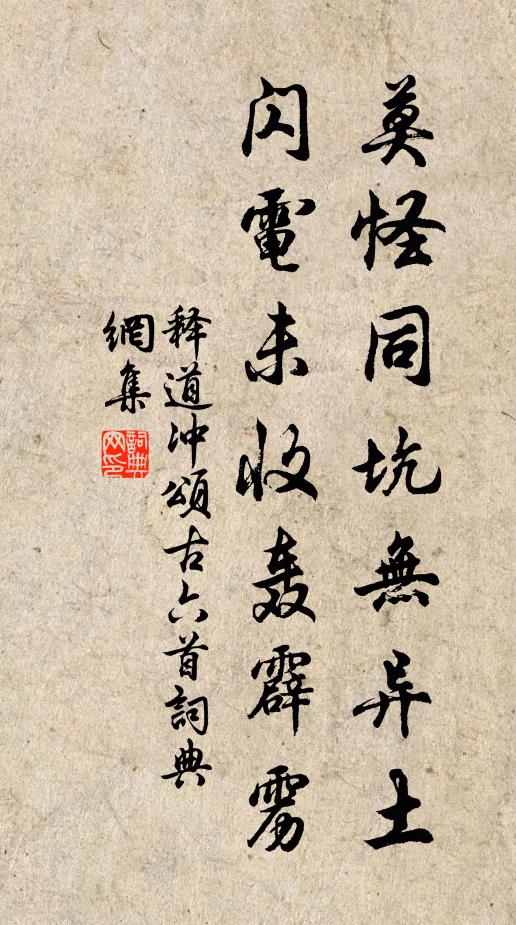 莫怪同坑無异土
闪電未收轰霹雳
释道冲頌古六首詞典
網集
詞典
网印